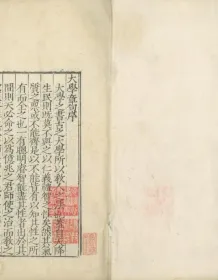 大學章句序
大學之書古之大學所以教人之法也蓋自天降
生民則既莫不與之以仁義禮智之性矣然其氣
質之稟或不能齊是以不能皆有以知其性之所
有而全之也一有聰明睿智能盡其性者出於其
間則天必命之以為億兆之君師使之治而教之